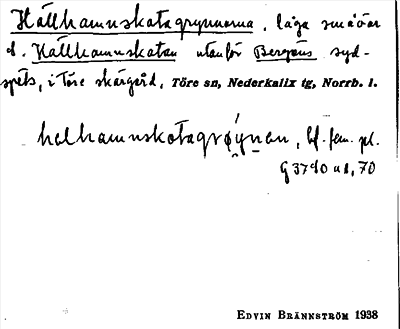 Hällhamnskatagrynnorna, låga småöar
o. Hällhamnskatan utanför Bergöns syd-
spets, i Töre skärgård, Töre sn, Nederkalix tg, Norrb. l.
halhamnskatagrǿynan, bf. fem. pl.
G 3740 u 1, 70
EDVIN BRÄNNSTRÖM 1938